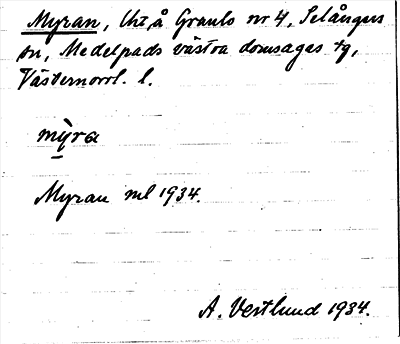 Myran, lht å Granlo nr 4, Selångers
sn, Medelpads västra domsagas tg,
Västernorrl. l.
mỳra
Myran ml 1934.
A. Vestlund 1934.